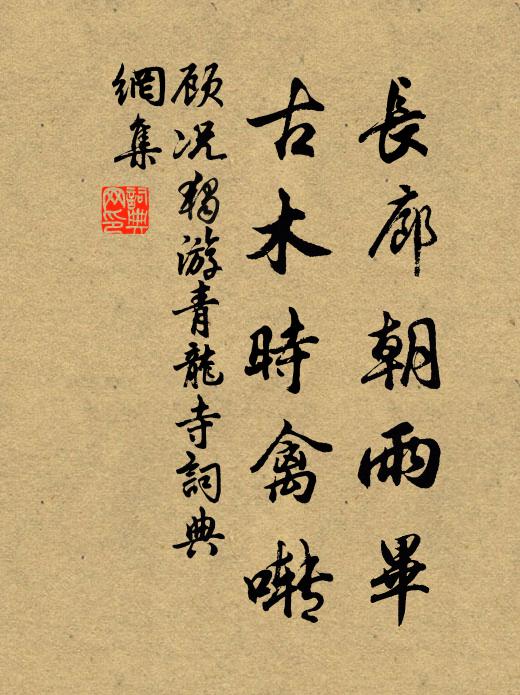 長廊朝雨畢
古木時禽囀
顾况獨游青龍寺詞典
網集
詞典
网印